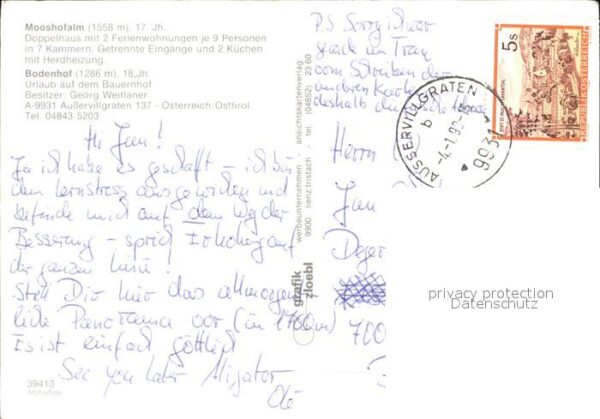 Mooshofalm (1558 m), 17. Jh.
Doppelhaus mit 2 Ferienwohnungen je 9 Personen
in 7 Kammern. Getrennte Eingänge und 2 Küchen
mit Herdheizung.
Bodenhof (1286 m), 18. Jh.
Urlaub auf dem Bauernhof
Besitzer: Georg Weitlaner
A-9931 Außervillgraten 137 - Österreich Osttirol
Tel. 04843 5203
Hi Jan!
Ja ich habe es geschafft - ich bin
dem Lernstress ausgewichen und
befinde mich auf dem Weg der
Besserung - sprich Erholung auf
der ganzen Linie!
Stell Dir hier das allmorgend
liche Panorama vor (in 1700m)
Es ist einfach göttlich
See you later Aligator
Ole
39413
Archivfoto
grafik
zloebl
werbeunternehmen ansichtskartenverlag
9900 lienz-tristach / tel. (04852) 23 60
P.S. Sorry ich war
gerade am
vom Schreiben der
anderen Karten
deshalb
Herrn
Jan
700
5s
STIFT ST. PAUL IM LAVANTTAL
REPUBLIK ÖSTERREICH
AUSSERVILLGRATEN
b
9931
privacy protection
Datenschutz